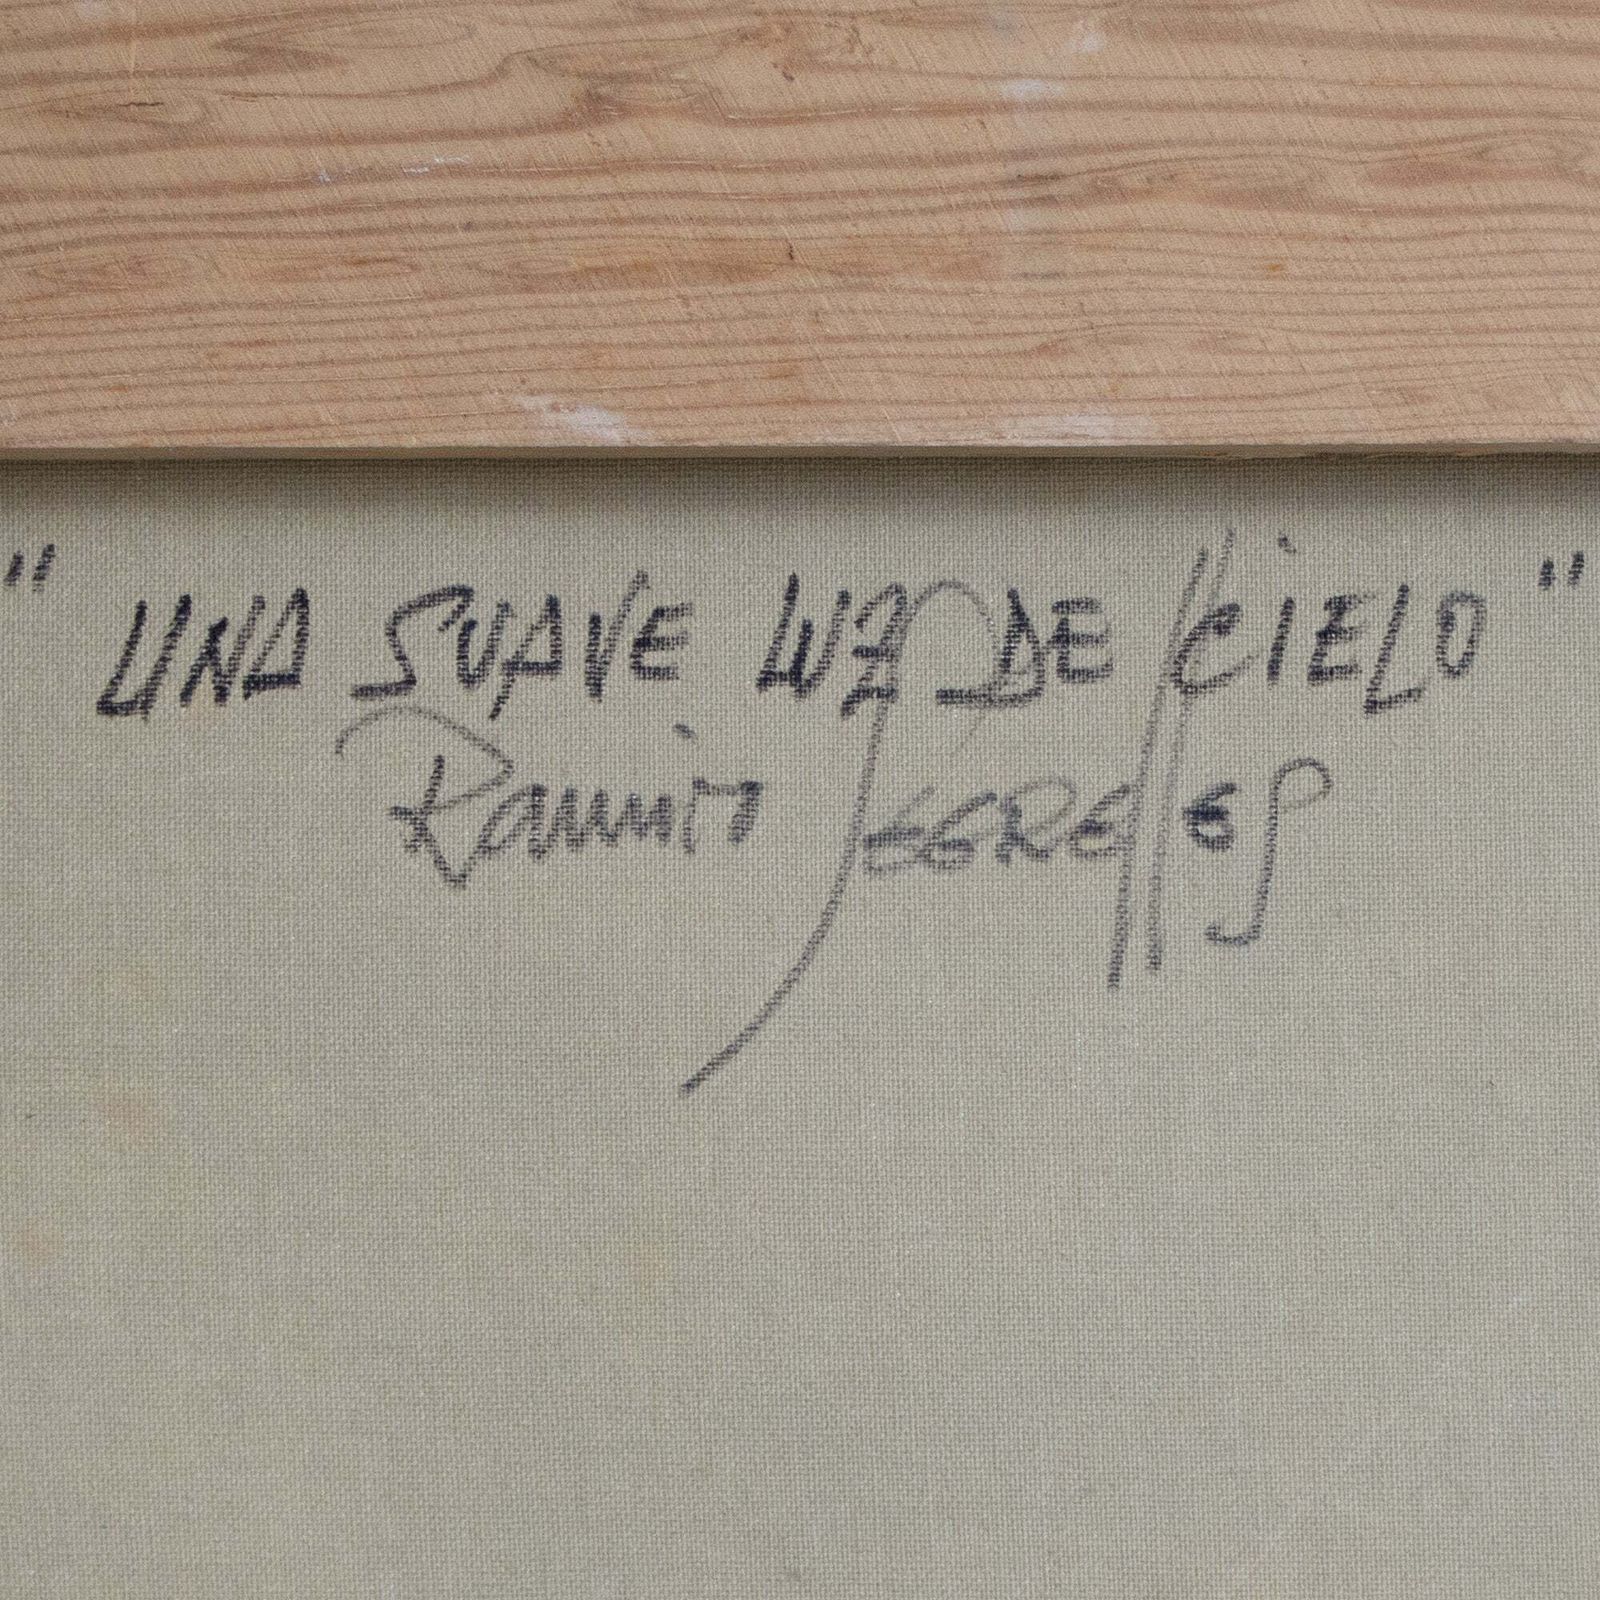 "UNA SUAVE LUZ DE CIELO"
Ramir Segrelles